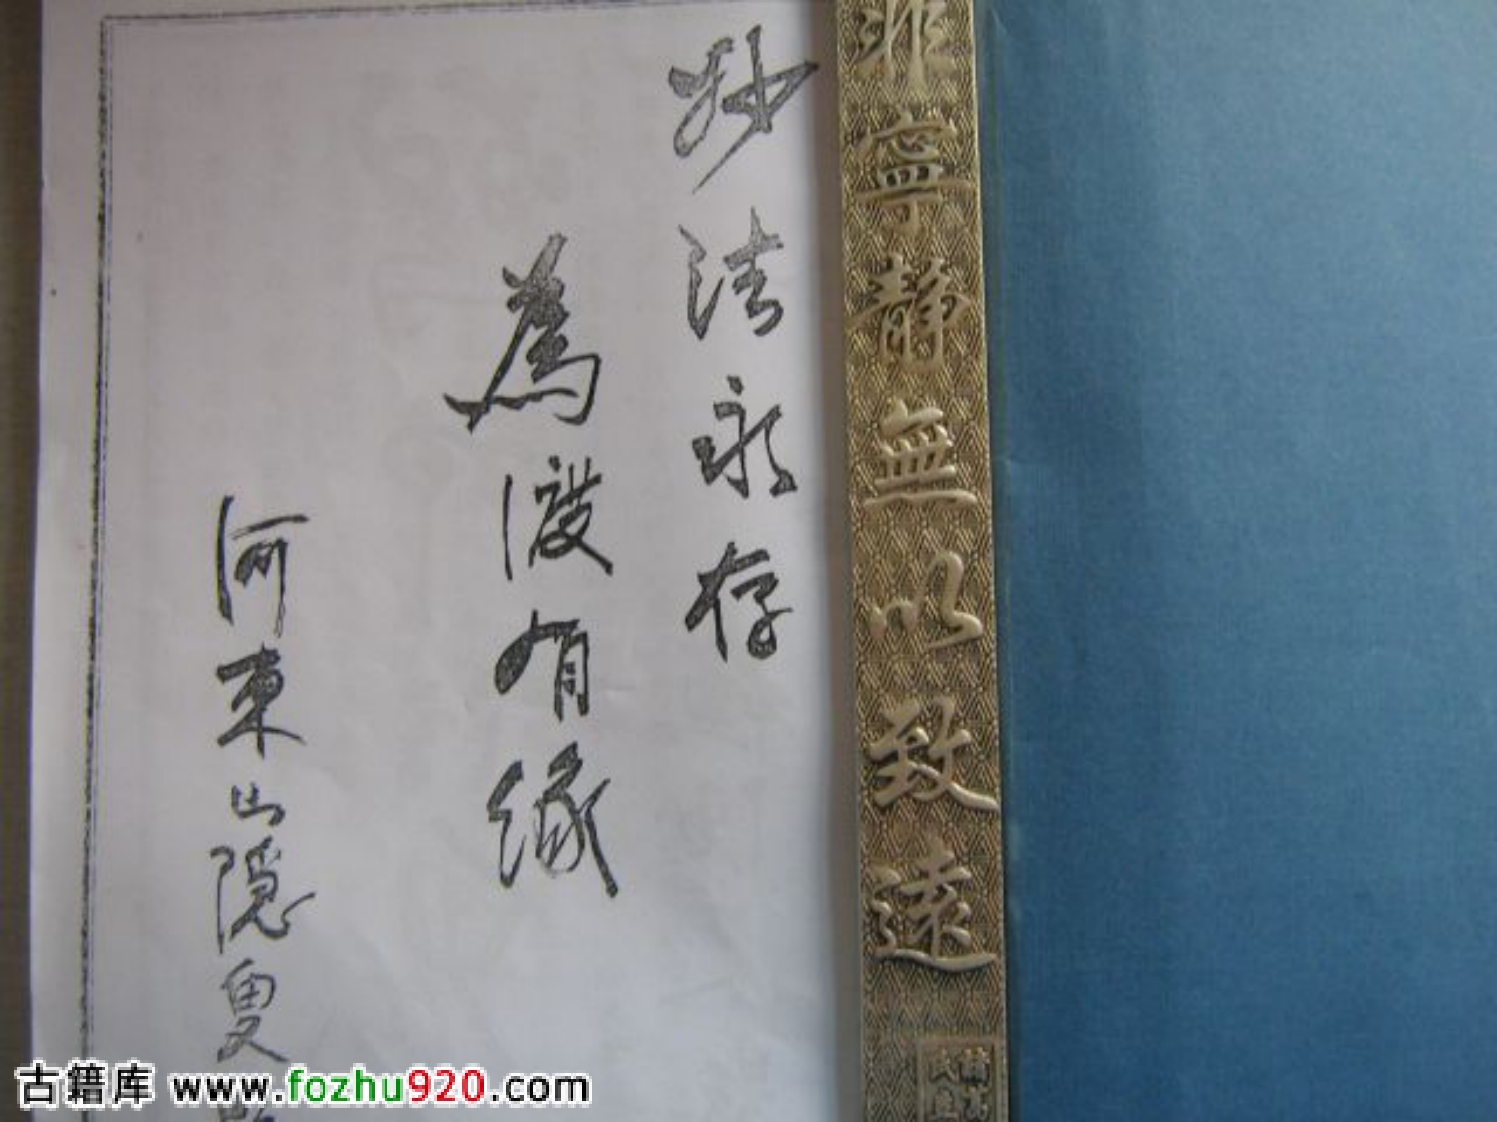 妙法永存
為渡有緣
河東山隱叟
非寧靜無以致遠
古籍库 www.fozhu920.com